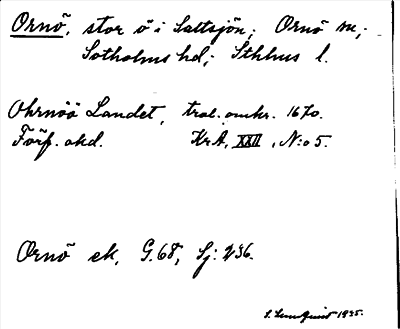 Ornö, stor ö i Saltsjön; Ornö sn;
Sotholms hd; Sthlms l.
Ohrnöö Landet, trol. omkr. 1670.
Förf. okd. KrA, XXII, N:o 5.
Ornö sk, G.68, Sj: 236.
S. Lundquist 1935.